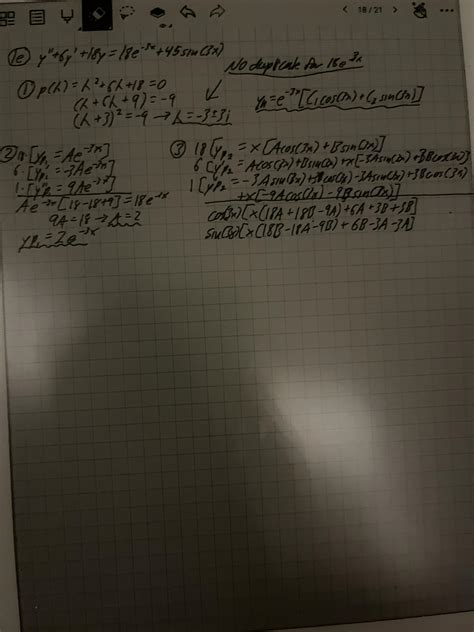 18 / 21
1e) y''+6y'+18y = 18e^-3x + 45sin(3x)
No duplicate for 18e^3x
① p(λ) = λ²+6λ+18 = 0
(λ+6λ+9) = -9
(λ+3)² = -9 → λ = -3±3i
yh = e^-3x [C1cos(3x) + C2sin(3x)]
② 18 [yp1 = Ae^-3x]
6 · [y'p1 = -3Ae^-3x]
1 · [y''p1 = 9Ae^-3x]
Ae^-3x [18-18+9] = 18e^-3x
9A = 18 → A = 2
yp1 = 2e^-3x
③ 18 [yp2 = x[Acos(3x) + Bsin(3x)]
6 [y'p2 = Acos(3x) + Bsin(3x) + x[-3Asin(3x) + 3Bcos(3x)]
1 [y''p2 = -3Asin(3x) + 3Bcos(3x) - 3Asin(3x) + 3Bcos(3x)
+x[-9Acos(3x) - 9Bsin(3x)]
cos(3x) [x(18A+18B-9A) + 6A+3B+3B]
sin(3x) [x(18B-18A-9B) + 6B-3A-3A]